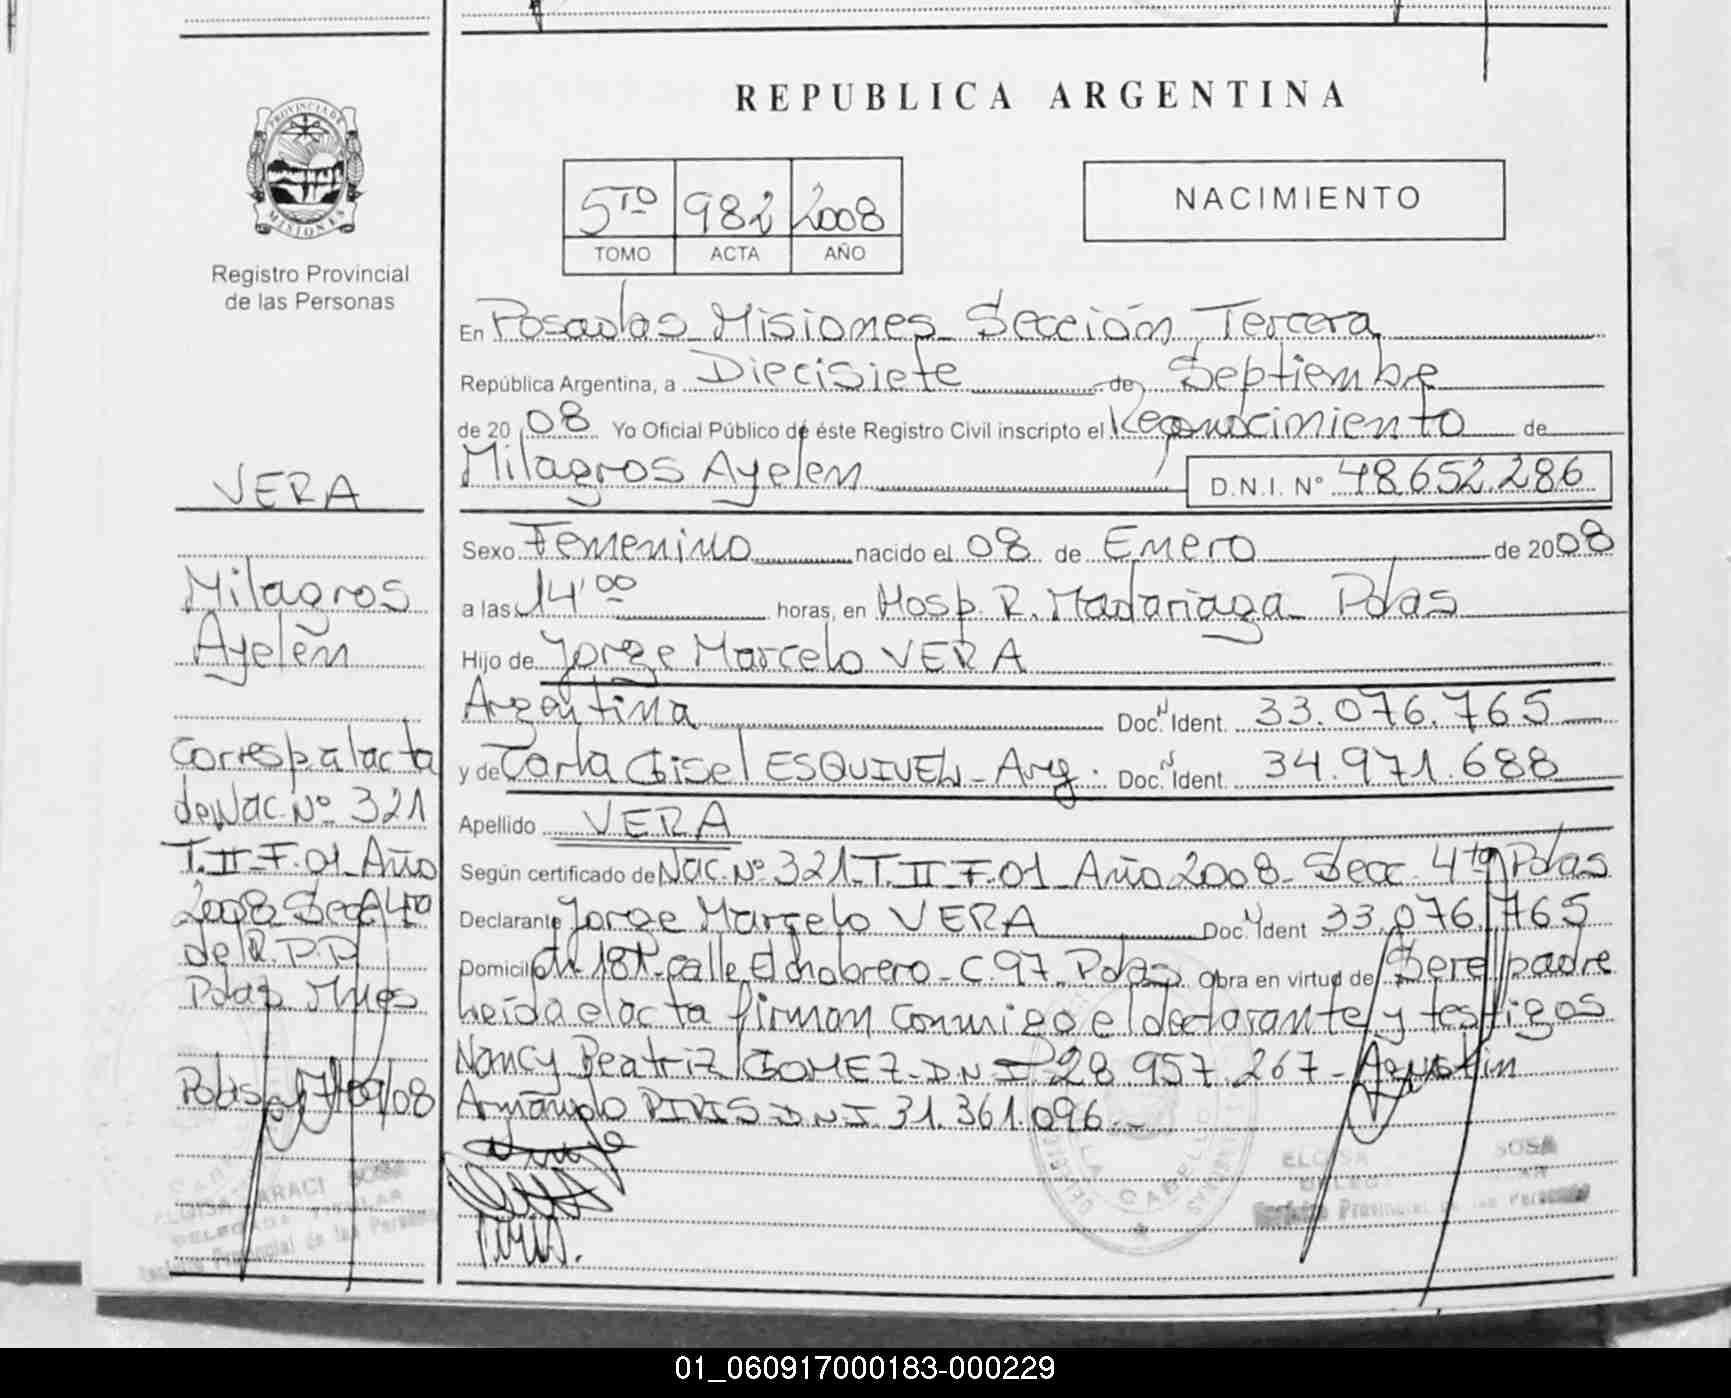 PROVINCIA DE
MISIONES
Registro Provincial
de las Personas
VERA
Milagros
Ayelén
Corresp. a l acta
de Nac. Nº 321
T. II - F. 01 - Año
2008 Secc 4ta
del R.P.P
Pdas Mnes
Pdas 17/09/08
REPUBLICA ARGENTINA
5TO 982 2008
TOMO ACTA AÑO
NACIMIENTO
En Posadas Misiones Sección Tercera
República Argentina, a Diecisiete de Septiembre
de 20 08 Yo Oficial Público de éste Registro Civil inscripto el Reconocimiento de
Milagros Ayelen D.N.I. Nº 48.652.286
Sexo Femenino nacido el 08 de Enero de 2008
a las 14'00 horas, en Hosp. R. Madariaga - Pdas
Hijo de Jorge Marcelo VERA
Argentina Doc. N Ident. 33.076.765
y de Carla Gisel ESQUIVEL - Arg. Doc. N Ident. 34.971.688
Apellido VERA
Según certificado de Nac. Nº 321 - T. II - F. 01 - Año 2008 - Secc. 4ta Pdas
Declarante Jorge Marcelo VERA Doc. N Ident 33.076.765
Domicilio Ch 181 - calle El chobrero - C. 97 - Pdas Obra en virtud de Ser el padre
Leída el acta firman conmigo el declarante y testigos
Nancy Beatriz GOMEZ - D.N.I 28.957.267 - Agustin
Armando PIRIS D.N.I. 31.361.096
ELOISA ARACI SOSA
DELEGADA TITULAR
Registro Provincial de las Personas
ELOISA SOSA
Registro Provincial de las Personas
01_060917000183-000229